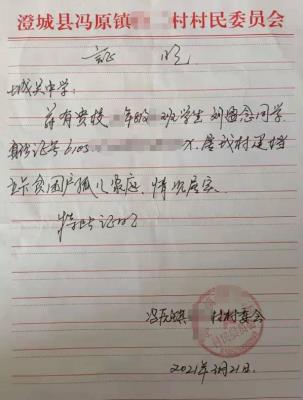 澄城县冯原镇 村村民委员会
证 明
城关中学:
兹有贵校 年级 班学生刘 同学
身份证号6105 X.是我村建档
立卡贫困户孤儿家庭,情况属实.
特此证明
冯原镇 村村委会
2021年 月21日.